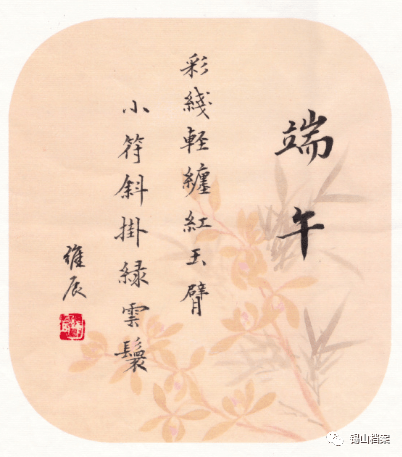 端午
彩綫軽纏紅玉臂
小符斜掛緑雲鬟
維辰
锡山档案